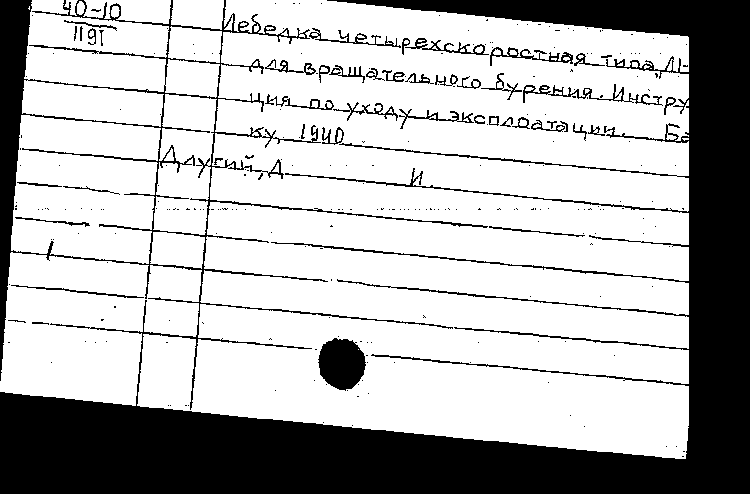 40-10
1191
Лебедка четырехскоростная типа „Л-
для вращательного бурения. Инстру
ция по уходу и эксплоатации. Ба
ку, 1940.
Длугий, Д И.